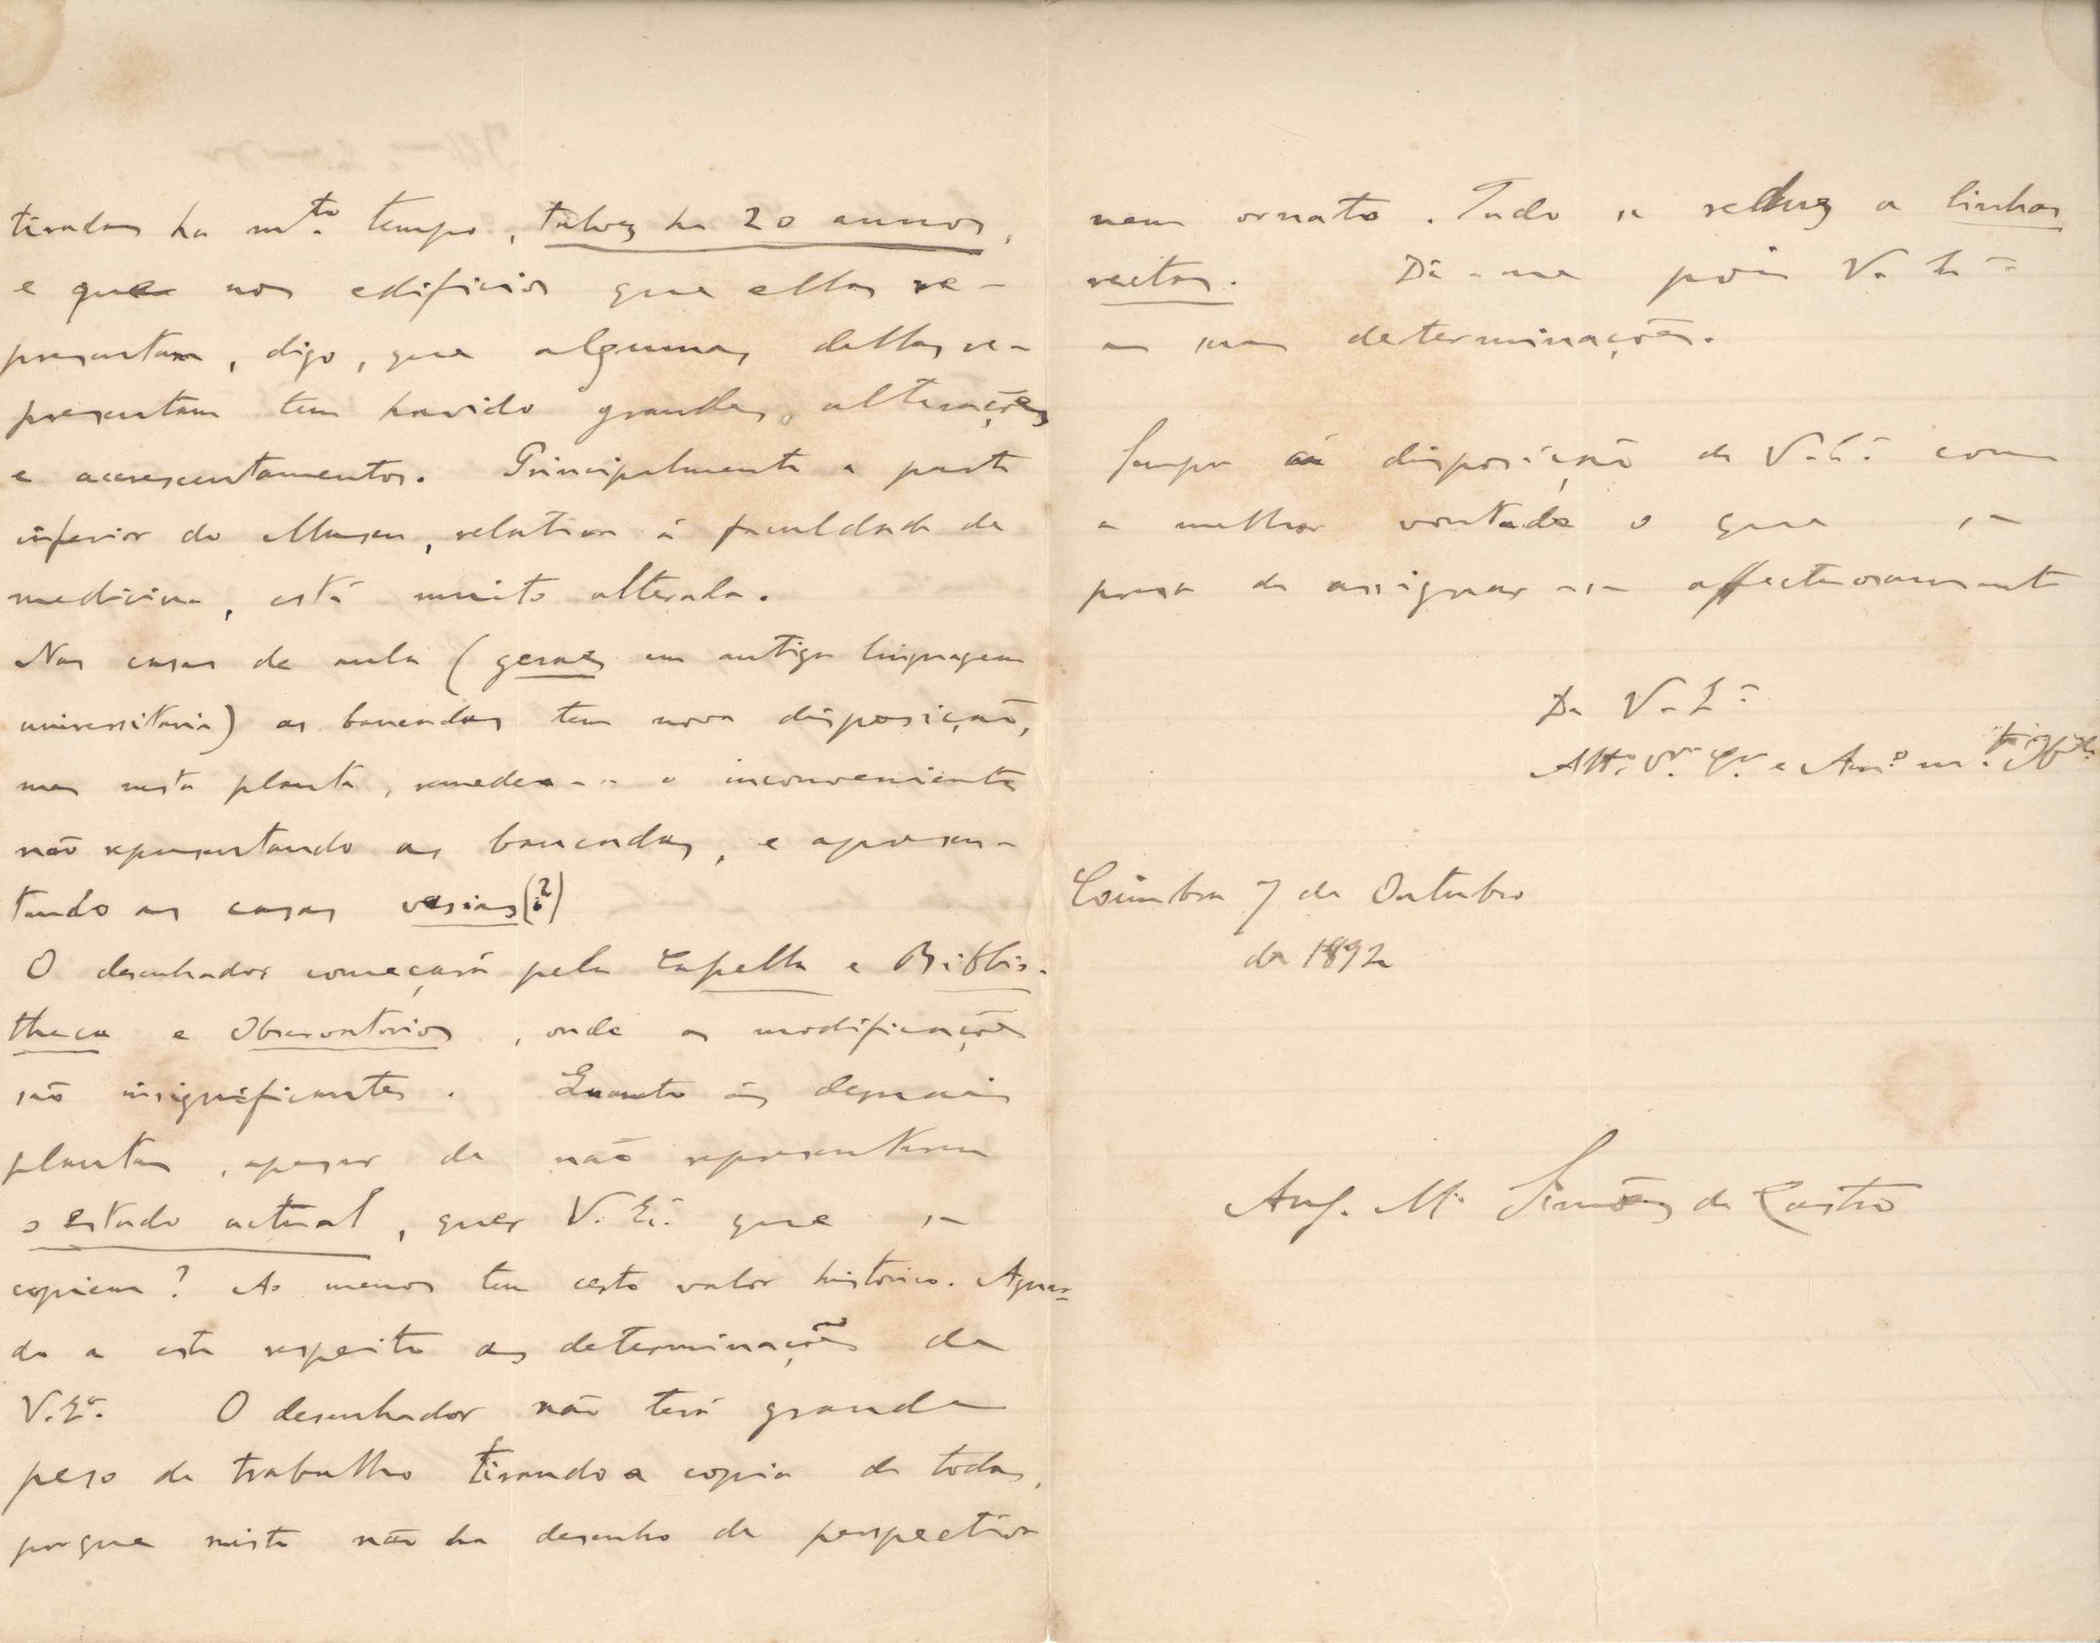 tiradas ha mto. tempo, talvez ha 20 annos,
e que nos edificios que ellas re-
presentam, digo, que algumas dellas re-
presentam tem havido grandes alterações
e accrescentamentos. Principalmente a parte
inferior do Museu, relativa á faculdade de
medicina, está muito alterada.
Nas casas de aula (geraes em antiga linguagem
universitaria) as bancadas tem nova disposição,
mas nesta planta, remedea-se o inconveniente
não representando as bancadas, e apresen-
tando as casas vasias (?)
O desenhador começará pela Capella e Biblio-
theca e Observatorios, onde as modificações
são insignificantes. Quanto ás demais
plantas, apesar de não representarem
o estado actual, quer V. Ex.ª que se
copiem? Ao menos tem certo valor historico. Aguar-
do a este respeito as determinações de
V. Ex.ª. O desenhador não terá grande
peso de trabalho tirando a copia de todas,
porque nisto não ha desenho de perspectiva
nem ornato. Tudo se reduz a linhas
rectas. Dê-me pois V. Ex.ª
as suas determinações.
Sempre á disposição de V. Ex.ª com
a melhor vontade o que se
presa de assignar-se affectuosamente
De V. Ex.ª
Att.º V.or C.do e Am.º m.to
Coimbra 7 de Outubro
de 1892
Aug. M. Simões de Castro